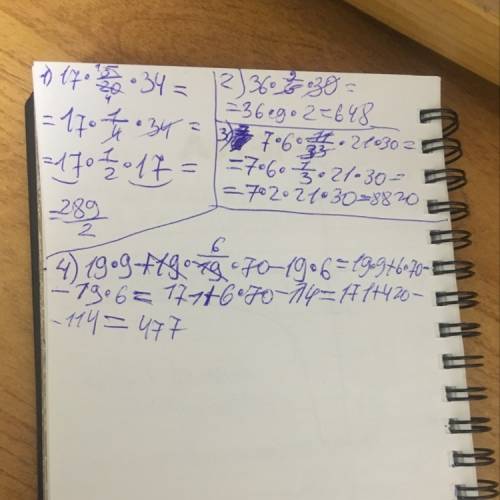 1) 17 · 5/20 · 34 =
= 17 · 1/4 · 34 =
= 17 · 1/2 · 17 =
= 289/2
2) 36 · · 30 =
= 36 · 9 · 2 = 648
3) 7 · 6 · 11/33 · 21 · 30 =
= 7 · 6 · 1/3 · 21 · 30 =
= 7 · 2 · 21 · 30 = 8820
4) 19 · 9 + 19 · 6/19 · 70 - 19 · 6 = 19 · 9 + 6 · 70 -
- 19 · 6 = 171 + 6 · 70 - 114 = 171 + 420 -
- 114 = 477